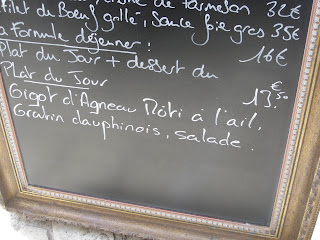 de Parmesan 32€
Filet du Boeuf grillé, sauce foie gras 35€
a Formule déjeuner:
Plat du Jour + dessert du 16€
Plat du Jour 13.€50
Gigot d'Agneau Rôti à l'ail,
Gratin dauphinois, salade.